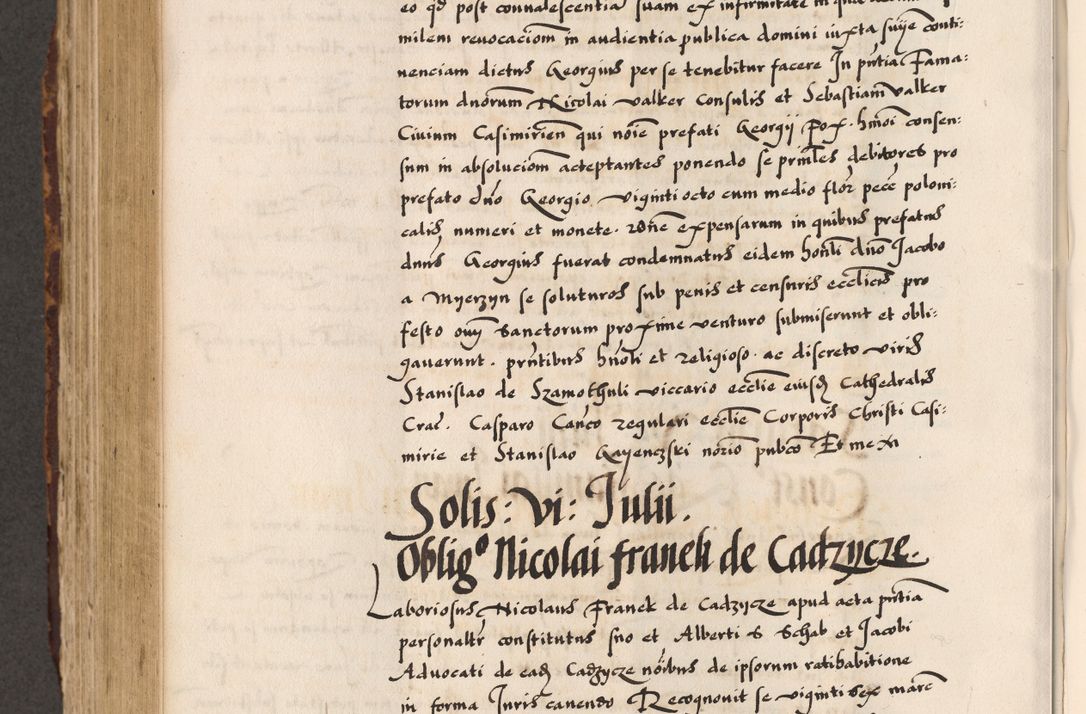 eo qd post convalescentia suam ex infirmitate in
milem revocaciom in audientia publica domini iuxta suye conti-
nenciam dictus Georgius per se tenebitur facere In pntia Fama-
torum dnorum Nicolai Valker Consulis et Sebastiani Valker
Civium Casimirien qui noie prefati Georgij pox. hmoi consen-
sum in absoluciom acceptantes ponendo se prinles debitores pro
prefato dno Georgio viginti octo cum medio flor pece poloni-
calis numeri et monete. rone expensarum in quibus prefatus
dnus Georgius fuerat condemnatus eidem honli dno Jacobo
a Myerzyn se soluturos sub penis et censuris ecclicis pro
festo oim Sanctorum proxime venturo submiserunt et obli-
gaverunt. prntibus hnoli et religioso. ac discreto viris
Stanislao de Szamothuli viccario ecclie eiusd Cathedralis
Crac. Casparo Canco regulari ecclie Corporis Christi Casi-
mirie et Stanislao Gayenczski norio pubco Et me N
Solis: vi: Julii.
Oblig° Nicolai franek de Cadzycze.
Laboriosus Nicolaus Franek de Cadzycze apud acta pntia
personaltr constitutus suo et Alberti S Schab et Jacobi
Advocati de ead Cadzycze noibus de ipsorum ratihabitione
in forma Juris canendo Recognovit se viginti sex marc